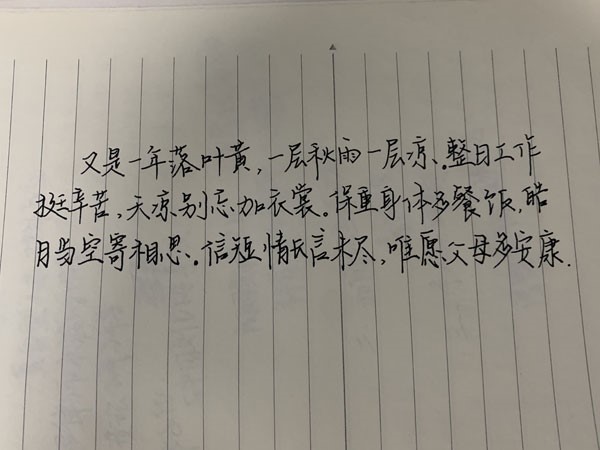 又是一年落叶黄，一层秋雨一层凉。整日工作
挺辛苦，天凉别忘加衣裳。保重身体多餐饭，皓
月当空寄相思。信短情长言未尽，唯愿父母多安康.